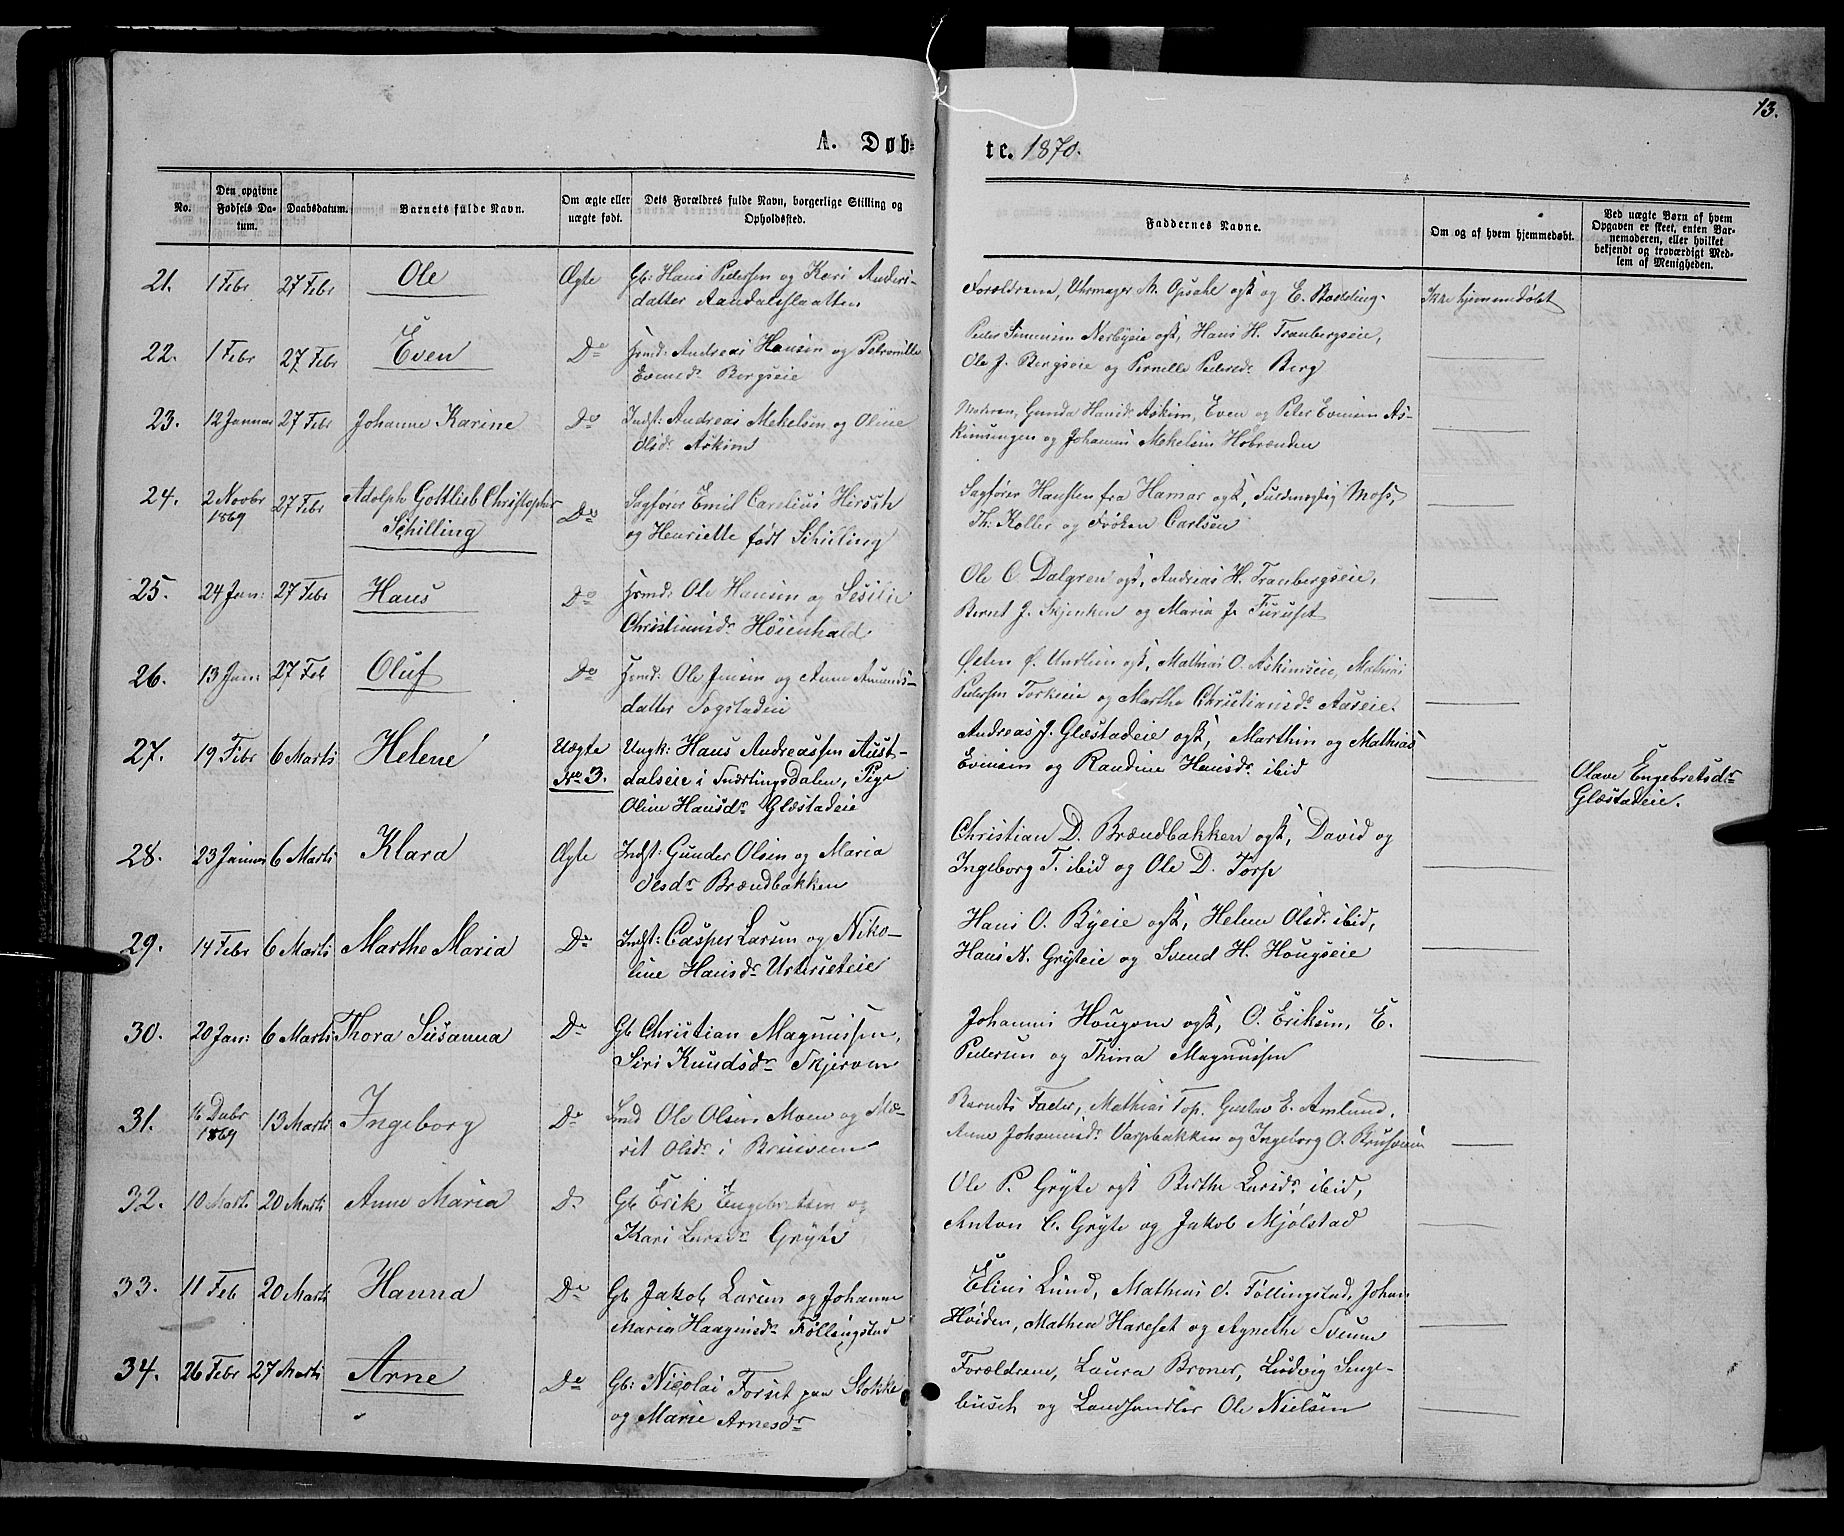 13.
A. Døb=
te. 1870.
No.
Den opgivne
Fødsels Da-
tum.
Daabsdatum.
Barnets fulde Navn.
Om ægte eller
uægte født.
Dets Forældres fulde Navn, borgerlige Stilling og
Opholdssted.
Faddernes Navne.
Om og af hvem hjemmedøbt.
Ved uægte Børn af hvem
Opgaven er skeet, enten Bar-
nemoderen, eller hvilket
bekjendt og troværdigt Med-
lem af Menigheden.
21. 1 Febr 27 Febr Ole Ægte Gb: Hans Pedersen og Kari Anders-
datter Aandalsflaatten
Forældrene, Uhrmager M. Opsahl ogsk og E. Bodding- Ikke hjemmedøbt
22. 1 Febr 27 Febr Even Do Huusmd: Andreas Hansen og Petronille
Evensdr Bergseie
Peder Simensen Nerbyeie ogsk, Hans H. Tranbergseie,
Ole J. Bergseie og Pernille Pedersdr Berg
23. 12 Januar 27 Febr Johanne Karine Do Indst: Andreas Mekelsen og Oline
Olsdr Askim
Moderen, Gunda Hansdr Askim, Even og Peter Evensen As-
kimsengen og Johannes Mekelsen Hobrænden
24. 2 Novbr 27 Febr Adolph Gottlieb Christopher
1869 Schilling Do Sagfører Emil Carelius Hirsch
og Henriette født Schilling
Sagfører Hansten fra Hamar ogsk, Fuldmægtig Moss,
Th: Koller og Frøken Carlsen
25. 24 Jan: 27 Febr Hans Do Hsmd: Ole Hansen og Sesilie
Christiansdr Høienhald
Ole C. Dalgren ogsk, Andreas H. Tranbergseie,
Bernt J. Skjenken og Maria J. Furuset
26. 13 Jan: 27 Feb Oluf Do Hsmd: Ole Jensen og Anne Amunds-
datter Sogstadeie
Østen Ø. Undlien ogsk, Mathias O. Askimseie, Mathias
Pedersen Torkeeie og Marthe Christiansdr Aaseie.
27. 19 Febr 6 Marts Helene Uægte Ungk: Hans Andreassen Aust-
No 3. dalseie i Snertingsdalen, Pige
Oline Hansdr Glæstadeie
Andreas J. Glæstadeie ogsk, Marthin og Mathias
Evensen og Randine Hansdr ibid
Olave Engebretsdr
Glæstadeie.
28. 23 Januar 6 Marts Klara Ægte Indst: Gunder Olsen og Maria
Olesdr Brændbakken
Christian D. Brændbakken ogsk, David og
Ingeborg T. ibid og Ole D. Torp
29. 14 Febr 6 Marts Marthe Maria Do Indst: Casper Larsen og Niko-
line Hansdr Ustseteie
Hans O. Byeie ogsk, Helene Olsdr ibid,
Hans N. Gryteie og Svend H. Hougseie
30. 20 Jan: 6 Marts Thora Susanna Do Gb Christian Magnussen,
Siri Knudsdr Skjerven
Johannes Hougom ogsk, O. Eriksen, E.
Pedersen og Thina Magnussen
31. 16 Decbr 13 Marts Ingeborg Do Smed Ole Olsen Moen og Ma-
1869 rit Olsdr i Brusveen
Barnets Fader, Mathias Top, Gustav E. Amlund,
Anne Johannesdr Varpbakken og Ingeborg O. Brusveen
32. 10 Marts 20 Marts Anne Maria Do Gb Erik Engebretsen og
Kari Larsdr Gryte
Ole P. Gryte ogsk Berthe Larsdr ibid,
Anton C. Gryte og Jakob Mjølstad
33. 11 Feb 20 Marts Hanna Do Gb Jakob Larsen og Johanne
Maria Haagensdr Føllingstad
Elius Lund, Mathias O. Føllingstad, Johan
Hviden, Mathea Hareset og Agnethe Sveum
34. 26 Febr 27 Marts Arne Do Gb: Nicolai Forset paa Stokke
og Marie Arnesdr
Forældrene, Laura Broner, Ludvig Senge-
busch og Landhandler Ole Nielsen